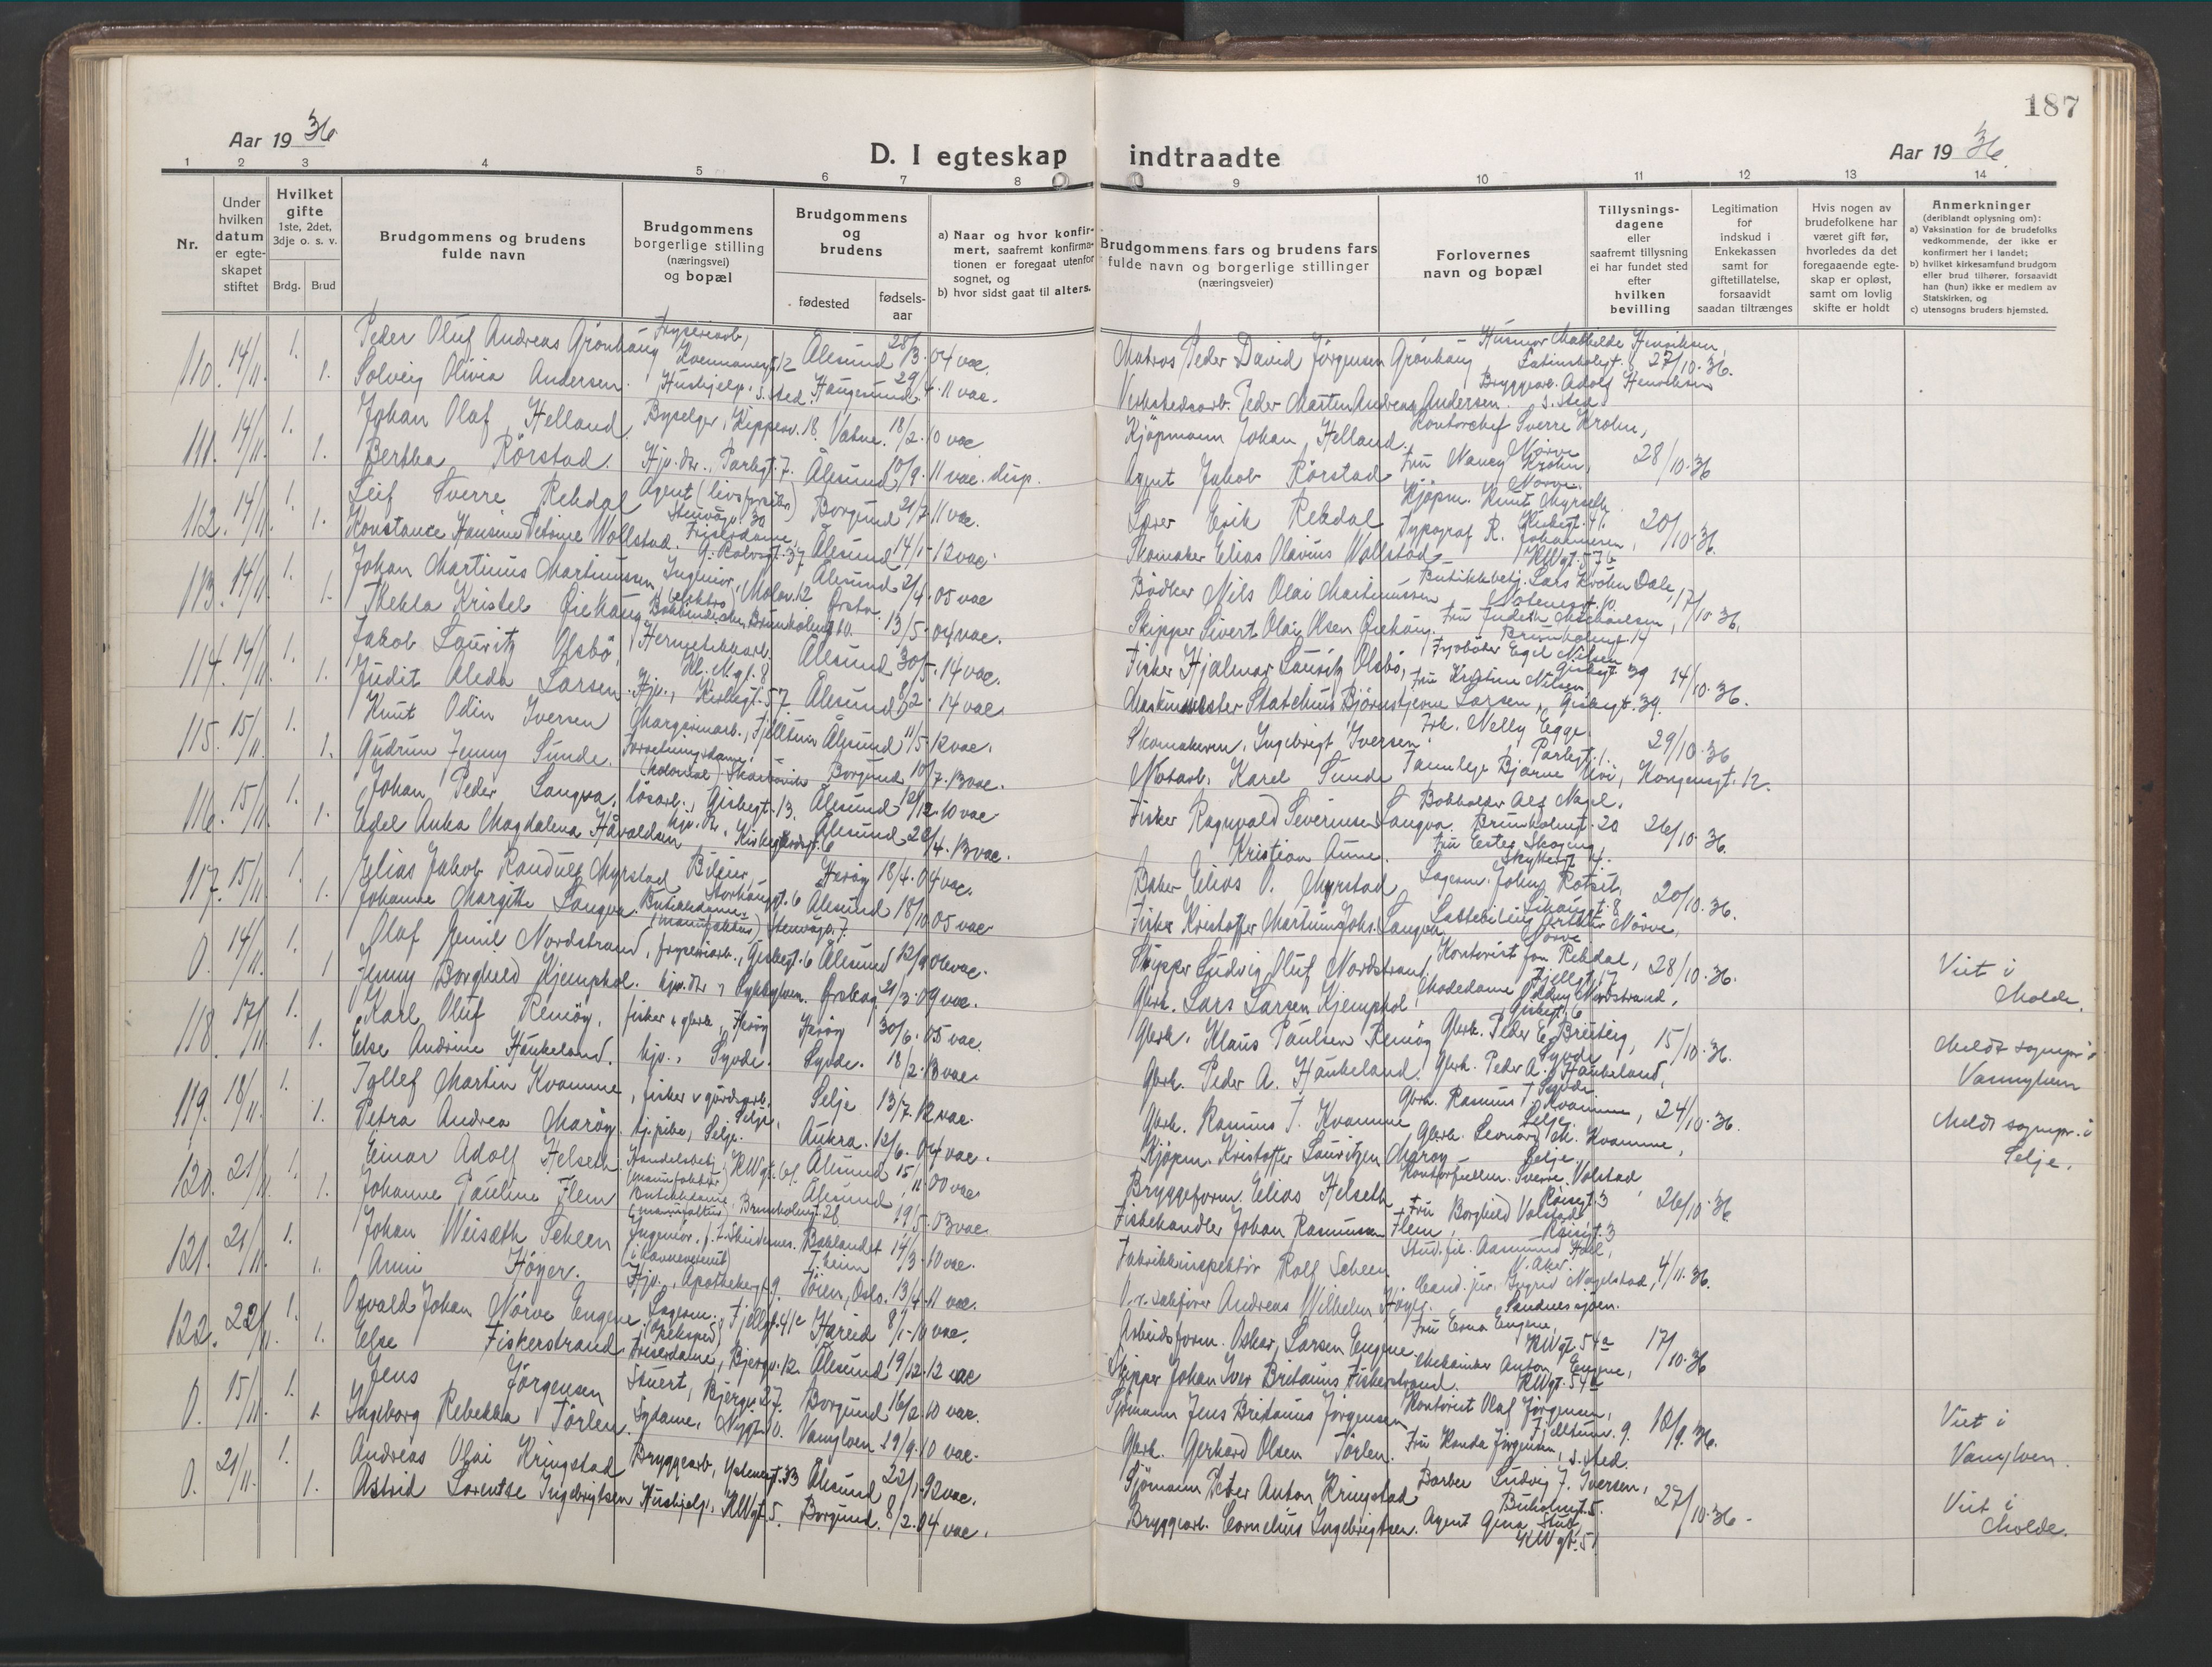 187
Aar 19 36
D. I egteskap indtraadte
Aar 19 36.
1 2 3 4 5 6 7 8 9 10 11 12 13 14
Nr.
Under hvilken datum er egteskapet stiftet
Hvilket gifte 1ste, 2det, 3dje o. s. v.
Brdg. Brud
Brudgommens og brudens fulde navn
Brudgommens borgerlige stilling (næringsvei) og bopæl
Brudgommens og brudens
fødested
fødselsaar
a) Naar og hvor konfirmert, saafremt konfirmationen er foregaat utenfor sognet, og
b) hvor sidst gaat til alters.
Brudgommens fars og brudens fars fulde navn og borgerlige stillinger (næringsveier)
Forlovernes navn og bopæl
Tillysningsdagene eller saafremt tillysning ei har fundet sted efter hvilken bevilling
Legitimation for indskud i Enkekassen samt for giftetillatelse, forsaavidt saadan tiltrænges
Hvis nogen av brudefolkene har været gift før, hvorledes da det foregaaende egteskap er opløst, samt om lovlig skifte er holdt
Anmerkninger (deriblandt oplysning om):
a) Vaksination for de brudefolks vedkommende, der ikke er konfirmert her i landet;
b) hvilket kirkesamfund brudgom eller brud tilhører, forsaavidt han (hun) ikke er medlem av Statskirken, og
c) utensogns bruders hjemsted.
110. 14/11. 1. Peder Oluf Andreas Grönhaug Ålesund 28/3.04 vac. Matros Peder David Jörgensen Grönhaug Husmor Mathilde Henriksen, 27/10.36.
1. Solveig Olivia Andersen. Hushjelp. s. sted. Haugesund 29/4.11 vac. Verkstedsarb. Peder Martin Andreas Andersen. Bryggearb. Adolf Henriksen s. sted.
111. 14/11. 1. Johan Olaf Helland. Byselger, Kipperv. 18. Vatne. 18/2.10 vac Kjöpmann Johan Helland. Kontorchef Sverre Krohn, Nörve 28/10.36
1. Bertha Rörstad. Hjv. dtr., Parkgt. 7. Ålesund 10/9.11 vac. disp. Agent Jakob Rörstad Fru Nancy Krohn, Nörve.
112. 14/11. 1. Leif Sverre Rekdal Agent (livsforsikr) Stenvåg. 30 Borgund 21/7 11 vac. Lærer Erik Rekdal Kjöpm. Knut Myrseth Kirkegt. 41. 20/10.36.
1. Konstance Hansine Petrine Wollstad. Frisördame, G. Rolvsgt. 37 Ålesund 14/1-12 vac. Skomaker Elias Olavius Wollstad Typograf R. Johannesen, KWgt. 57b
113. 14/11. 1. Johan Martinius Martinussen Ingeniör, (elektro) Molov. 12 Ålesund 21/4.05 vac Bödker Nils Olai Martinussen Butikkbetj. Lars Krohn Dale, Notenesgt. 10 17/10.36.
1. Thekla Kristel Giskaug Brunholmgt 10. Ørsta 13/5-04 vac. Skipper Sivert Olai Olsen Fru Judith Michaelsen, Brunholmgt. 14
114. 14/11. 1. Jakob Lauritz Olsbö, Hermetikkarb. Kl. M. gt. 8 Ålesund 30/5-14 vac. Fisker Hjalmar Lauritz Olsbö, Fyrböter Egil Nilsen Giskegt. 39 14/10.36.
1. Judit Aleda Larsen. Hjv., Kirkegt. 57. Ålesund 8/2.14 vac Maskinmester Statchius Björnstjerne Larsen, Fru Kristine Nilsen, Giskegt. 39.
115. 15/11. 1. Knut Odin Iversen Margarinarb., Fjelltun Ålesund 11/5 12 vac. Skomakerm. Ingebrigt Iversen. Frk. Nelly Egge Parkgt. 1. 29/10.36
1. Gudrun Jenny Sunde. Forretningsdame (kolonial) Borgund 10/7.13 vac. Motorb. Karel Sunde Tannlege Bjarne Urvi, Kongensgt. 12.
116. 15/11. 1. Johan Peder Langva. lösarb., Giskegt. 13. Ålesund 12/12.10 vac Fisker Ragnvald Severinsen Langva. Bokholder Alf Nagel. Brunholmgt. 20 26/10.36.
1. Edel Anka Magdalena Håvaldsen hjv. dtr., Kirkegårdsgt. 6 Ålesund 20/4.13 vac. Kristian Aune. Fru Ester Skogeng Skyttergt. 4.
117. 15/11. 1. Elias Jakob Randulf Myrstad Bileier, Storhaugt. 6 Heröy 18/4.04 vac. Baker Elias O. Myrstad Lagerm. Johns Rotset, 20/10.36.
1. Johanne Margitte Langva. Butikkdame (manufaktur) Stenvåg. 7. Ålesund 18/10 05 vac Fisker Kristoffer Martinus Johs. Langva Lastebileier Nörve, Nörve
0. 14/11. 1. Olaf Emil Nordstrand, fryseriarb., Giskegt. 6 Ålesund 12/9 06 vac. Skipper Ludvig Oluf Nordstrand, Kontorist Jon Rekdal, Fjellgt. 17 28/10.36. Viet i Molde.
1 Jenny Borghild Kjemphol. hjv. dtr., Sykkylven. Ørskog 21/3.09 vac. Gbrk. Lars Larsen Kjemphol Modedame Oddny Nordstrand, Giskegt. 6
118. 17/11. 1. Karl Oluf Remöy, fisker v gbrk., Heröy Heröy 30/6.05 vac. Gbrk. Klaus Paulsen Remöy Gbrk. Peder E. Breiteig, Syvde 15/10.36. Meldt sognepr. i Vannylven
1. Else Andrine Haukeland. hjv., Syvde. Syvde. 18/2.13 vac. Gbrk. Peder A. Haukeland. Gbrk. Peder A. Haukeland, Syvde
119. 18/11. 1. Tollef Martin Kvamme, fisker v gårdsarb. Selje, Selje 13/7.12 vac. Gbrk. Rasmus T. Kvamme Gbrk. Rasmus T Kvamme, Selje. 24/10.36. Meldt sognepr. i Selje.
1. Petra Andrea Maröy. hj. pike, Selje. Aukra. 12/6.04 vac. Kjöpm. Kristoffer Lauritzen Maröy Gbrk. Leonard M. Kvamme, Selje.
120. 21/11. 1. Einar Adolf Helseth. Handelsbetj. (manufaktur) Ålesund 15/11.00 vac Bryggeform. Elias Helseth Kontorfullm. Sverre Volstad, Röisgt. 3 26/10.36
1. Johanne Pauline Flem Butikkdame (manufaktur) Brunholmgt. 28 Ålesund 19/5.03 vac Fiskehandler Johan Rasmussen Flem, Fru Borghild Volstad Röisgt. 3
121. 21/11. 1. Johan Weisæth Scheen Ingeniör, (i havnevesenet) Baklandet Tr.heim 14/3.10 vac. Fabrikkinspektör Rolf Scheen Stud. fil. Aasmund Hoel, V. Aker 4/11.36.
1. Anni Höyer. Hjv., Apothekergt. 9. Töien, Oslo. 13/4.11 vac. O.r.sakförer Andreas Wilhelm Höyer. Cand. jur. Sigrid Nagelstad, Sandnessjöen.
122. 22/11. 1. Osvald Johan Nörve Engene. Lagerm. (Eksped) Fjellgt. 41c Hareid 8/1-10 vac. Arbeidsform. Oskar Larsen Engene. Fru Erna Engene, KWgt 54a 17/10.36
1. Else Fiskerstrand. Frisördame, Bjergv. 12. Ålesund 19/12.12 vac Skipper Johan Iver Britanius Fiskerstrand. Mekaniker Anton Engene, KWgt. 54a
0. 15/11. 1. Jens Jörgensen Stuert, Bjergv. 27. Borgund 16/2.10 vac. Sjömann Jens Britanius Jörgensen Kontorist Olaf Jörgensen, Fjelltun. 9. 18/9.36. Viet i Vanylven.
1. Ingeborg Rebekka Törlen. Sydame, Nygt. 10. Vanylven 19/9.10 vac. Gbrk. Gerhard Olsen Törlen. Fru Handa Jörgensen, s. sted.
0. 21/11. 1. Andreas Olai Kringstad Bryggearb, Ystenesgt. 33 Ålesund 22/1-92 vac. Sjömann Peter Anton Kringstad Barber Ludvig J. Iversen, Buholmgt. 5. 27/10.36. Viet i Molde.
1. Astrid Lorentse Ingebrigtsen Hushjelp. KWgt. 5. Borgund. 8/2.04 vac. Bryggearb. Cornelius Ingebrigtsen. Agent Gina Stub, KWgt. 51